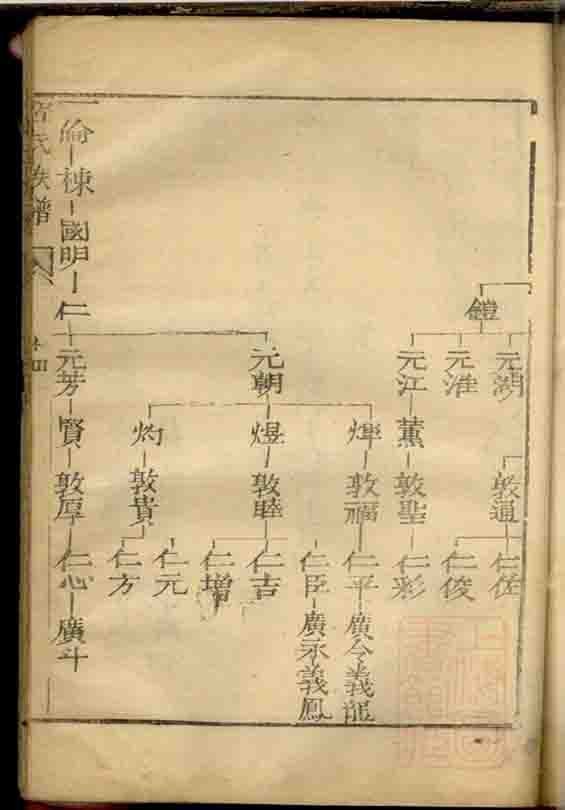 鎧
元湖
敦通
仁佐
仁俊
元淮
元江 薰 敦聖 仁彩
元朝
煇 敦福 仁平 廣令義龍
仁臣 廣永義鳳
煜 敦睦 仁吉
仁增
灼 敦貴 仁元
仁方
一倫 棟 國明 仁
元芳 賢 敦厚 仁心 廣斗
氏族譜